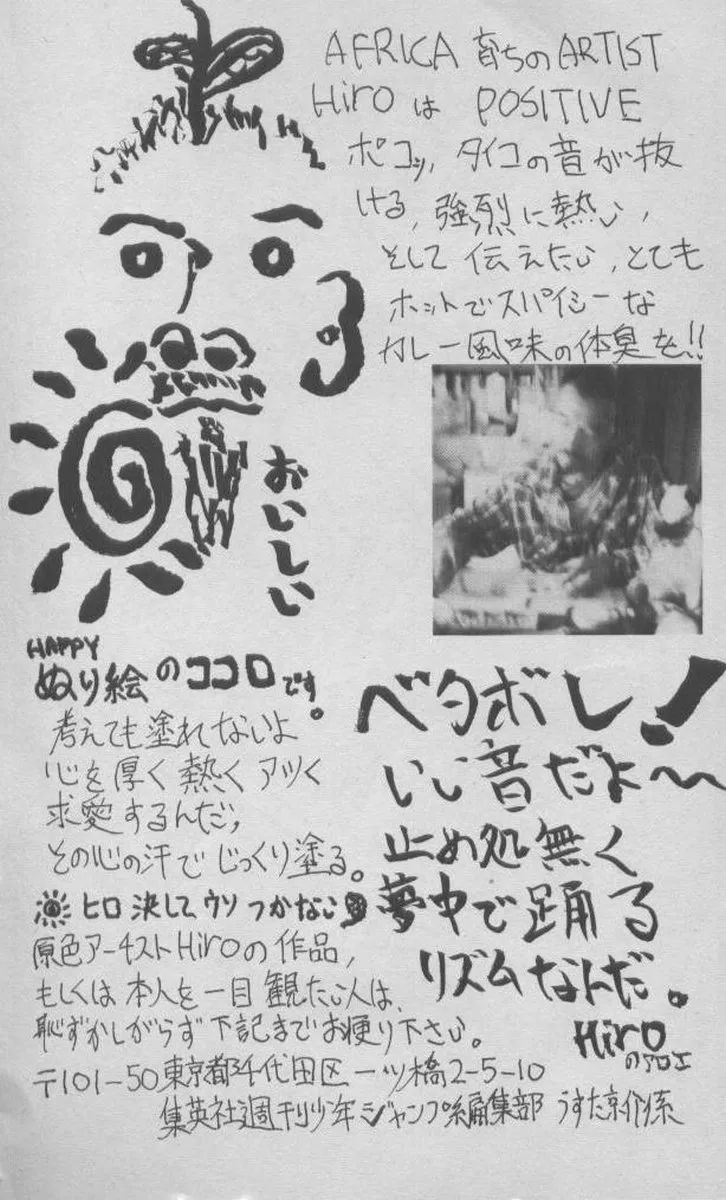 AFRICA 育ちの ARTIST
Hiro は POSITIVE
ポコッ, タイコの音が抜
ける, 強烈に熱い,
そして 伝えたい, とても
ホットでスパイシーな
カレー風味の体臭を!!
おいしい
HAPPY
ぬり絵のココロです。
考えても塗れないよ
心を厚く熱くアツく
求愛するんだ,
その心の汗でじっくり塗る。
ヒロ 決してウソつかない
原色アーチストHiroの作品,
もしくは本人を一目観たい人は、
恥ずかしがらず下記までお便り下さい。
〒101-50 東京都千代田区一ツ橋2-5-10
集英社週刊少年ジャンプ編集部 うすた京介係
ベタボレ!
いい音だよ〜〜
止め処無く
夢中で踊る
リズムなんだ。
Hiro
の